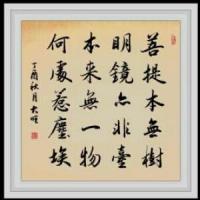 菩提本無樹
明鏡亦非臺
本来無一物
何處惹塵埃
丁酉秋月大